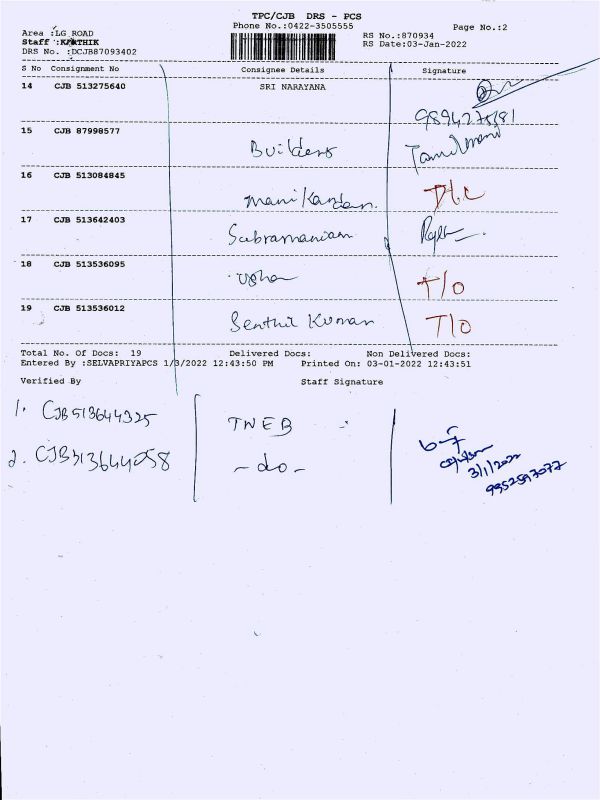 TPC/CJB DRS - PCS
Phone No.:0422-3505555 Page No.:2
Area :LG ROAD RS No.:870934
Staff :KARTHIK RS Date:03-Jan-2022
DRS No. :DCJB87093402
S No Consignment No Consignee Details Signature
14 CJB 513275640 SRI NARAYANA
15 CJB 87998577 Builders Tamilmani
16 CJB 513084845 Manikandan
17 CJB 513642403 Subramaniam
18 CJB 513536095 Usha T/O
19 CJB 513536012 Senthil Kumar T/O
Total No. Of Docs: 19 Delivered Docs: Non Delivered Docs:
Entered By :SELVAPRIYAPCS 1/3/2022 12:43:50 PM Printed On: 03-01-2022 12:43:51
Verified By Staff Signature
1. CJB513644325 TNEB
2. CJB513644058 -do-
3/1/2022
9952597077